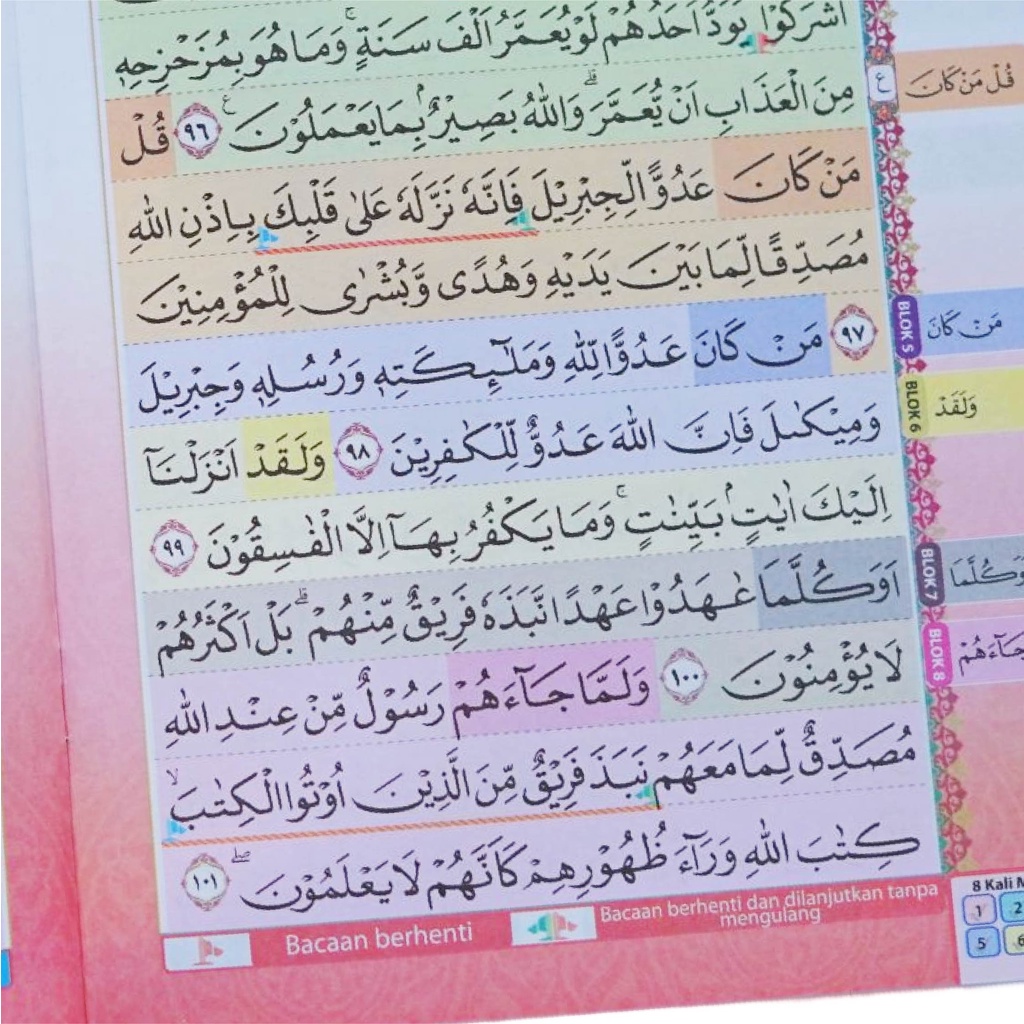 اَشْرَكُوْا يَوَدُّ اَحَدُهُمْ لَوْ يُعَمَّرُ اَلْفَ سَنَةٍۚ وَمَا هُوَ بِمُزَحْزِحِهٖ
مِنَ الْعَذَابِ اَنْ يُّعَمَّرَۗ وَاللّٰهُ بَصِيْرٌۢ بِمَا يَعْمَلُوْنَ ࣖ ٩٦ قُلْ
مَنْ كَانَ عَدُوًّا لِّجِبْرِيْلَ فَاِنَّهٗ نَزَّلَهٗ عَلٰى قَلْبِكَ بِاِذْنِ اللّٰهِ
مُصَدِّقًا لِّمَا بَيْنَ يَدَيْهِ وَهُدًى وَّبُشْرٰى لِلْمُؤْمِنِيْنَ
٩٧ مَنْ كَانَ عَدُوًّا لِّلّٰهِ وَمَلٰۤىِٕكَتِهٖ وَرُسُلِهٖ وَجِبْرِيْلَ
وَمِيْكٰىلَ فَاِنَّ اللّٰهَ عَدُوٌّ لِّلْكٰفِرِيْنَ ٩٨ وَلَقَدْ اَنْزَلْنَآ
اِلَيْكَ اٰيٰتٍۢ بَيِّنٰتٍۚ وَمَا يَكْفُرُ بِهَآ اِلَّا الْفٰسِقُوْنَ ٩٩
اَوَكُلَّمَا عٰهَدُوْا عَهْدًا نَّبَذَهٗ فَرِيْقٌ مِّنْهُمْۗ بَلْ اَكْثَرُهُمْ
لَا يُؤْمِنُوْنَ ١٠٠ وَلَمَّا جَاۤءَهُمْ رَسُوْلٌ مِّنْ عِنْدِ اللّٰهِ
مُصَدِّقٌ لِّمَا مَعَهُمْ نَبَذَ فَرِيْقٌ مِّنَ الَّذِيْنَ اُوْتُوا الْكِتٰبَۙ
كِتٰبَ اللّٰهِ وَرَاۤءَ ظُهُوْرِهِمْ كَاَنَّهُمْ لَا يَعْلَمُوْنَۖ ١٠١
ع
قُلْ مَنْ كَانَ
BLOK 5 مَنْ كَانَ
BLOK 6 وَلَقَدْ
BLOK 7 اَوَكُلَّمَا
BLOK 8 جَاۤءَهُمْ
Bacaan berhenti
Bacaan berhenti dan dilanjutkan tanpa
mengulang
8 Kali
1 2
5 6